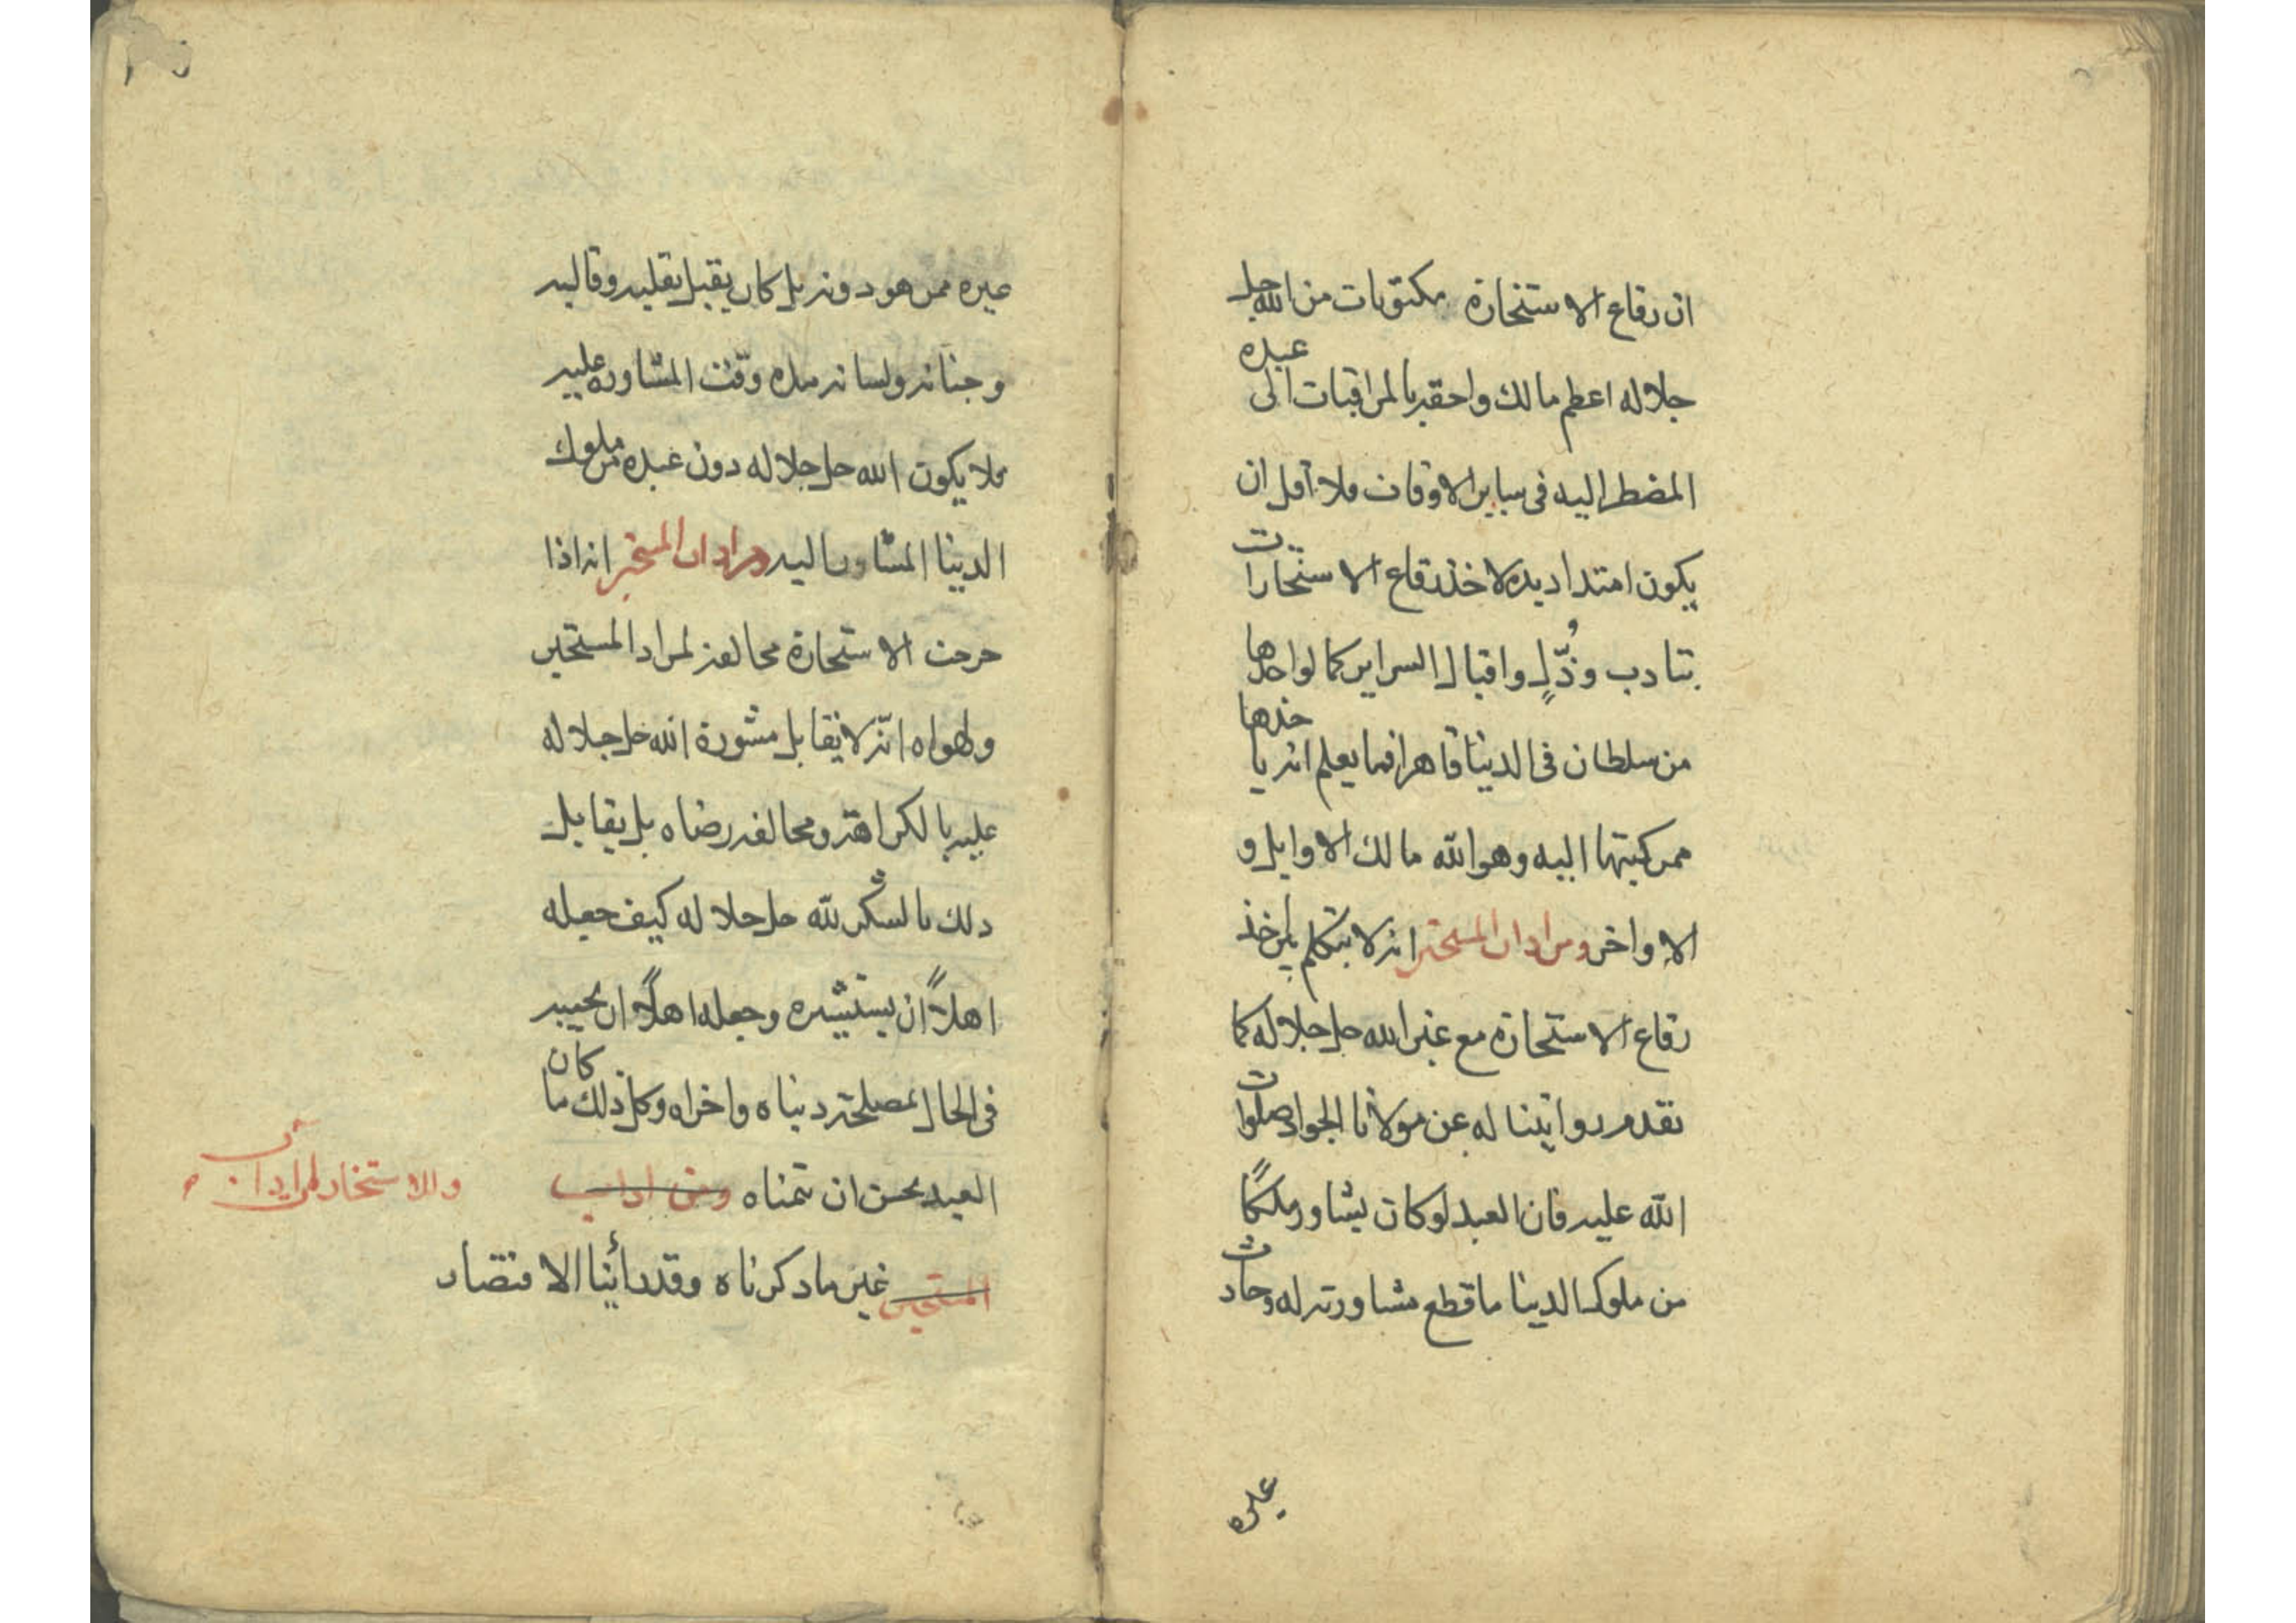 ان رقاع الاستخارة مكتوبات من الله جل
جلاله اعظم مالك واحقر بالمراقبات الى عبده
المضطر اليه فى ساير الاوقات فلا اقل ان
يكون امتداد يده لاخذ رقاع الاستخارات
بتادب وذُلٍّ واقبال السراير كما لو اخذها
من سلطان فى الدينا قاهرا فيما يعلم انه ياخذها
ممن كتبها اليه وهو الله مالك الاوايل و
الاواخر ومن اداب المستخير انه لا يتكلم بين اخذ
رقاع الاستخارة مع غير الله جل جلاله كما
تقدم روايتنا له عن مولانا الجواد صلوات
الله عليه فان العبد لو كان يشاور ملكًا
من ملوك الدينا ما قطع مشاورته له وحادث
غيره
غيره ممن هو دونه بل كان يقبل بقلبه وقالبه
وجنانه ولسانه مدة وقت المشاوره عليه
فلا يكون الله جل جلاله دون عبده من ملوك
الدينا المشاور اليه ومن اداب المستخير انه اذا
خرجت الاستخارة مخالفة لمراد المستخير
ولهواه انّه لا يقابل مشورة الله جل جلاله
عليه بالكراهة ومخالفه رضاه بل يقابل
ذلك بالشكر لله جل جلاله كيف جعله
اهلاً ان يستشيره وجعله اهلاً ان يجيبه
فى الحال بمصلحة دنياه واخراه وكل ذلك ما كان
العبد يحسن ان يتمناه ومن اداب
المستخير غير ما ذكرناه وقد رأينا الاقتصار